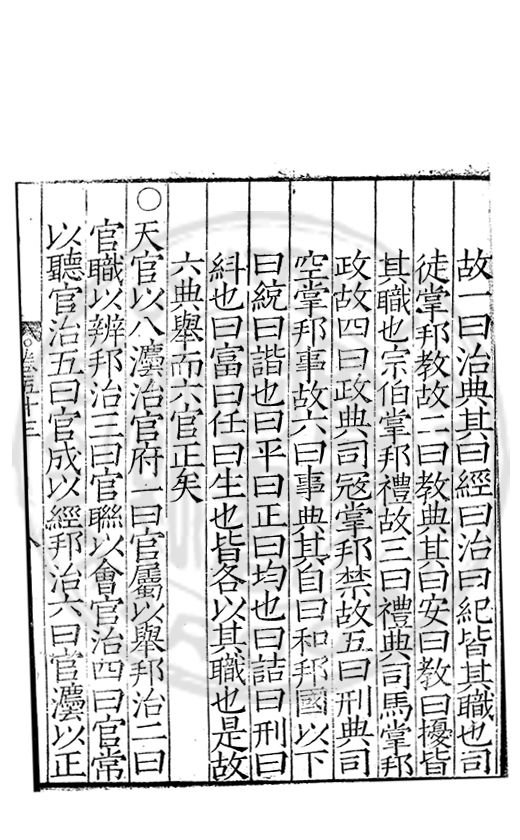 故一曰治典其曰經曰治曰紀皆其職也司
徒掌邦教故二曰教典其曰安曰教曰擾皆
其職也宗伯掌邦禮故三曰禮典司馬掌邦
政故四曰政典司寇掌邦禁故五曰刑典司
空掌邦事故六曰事典其自曰和邦國以下
曰統曰諧也曰平曰正曰均也曰詰曰刑曰
糾也曰富曰任曰生也皆各以其職也是故
六典舉而六官正矣
○天官以八灋治官府一曰官屬以舉邦治二曰
官職以辨邦治三曰官聯以會官治四曰官常
以聽官治五曰官成以經邦治六曰官灋以正
卷五十三